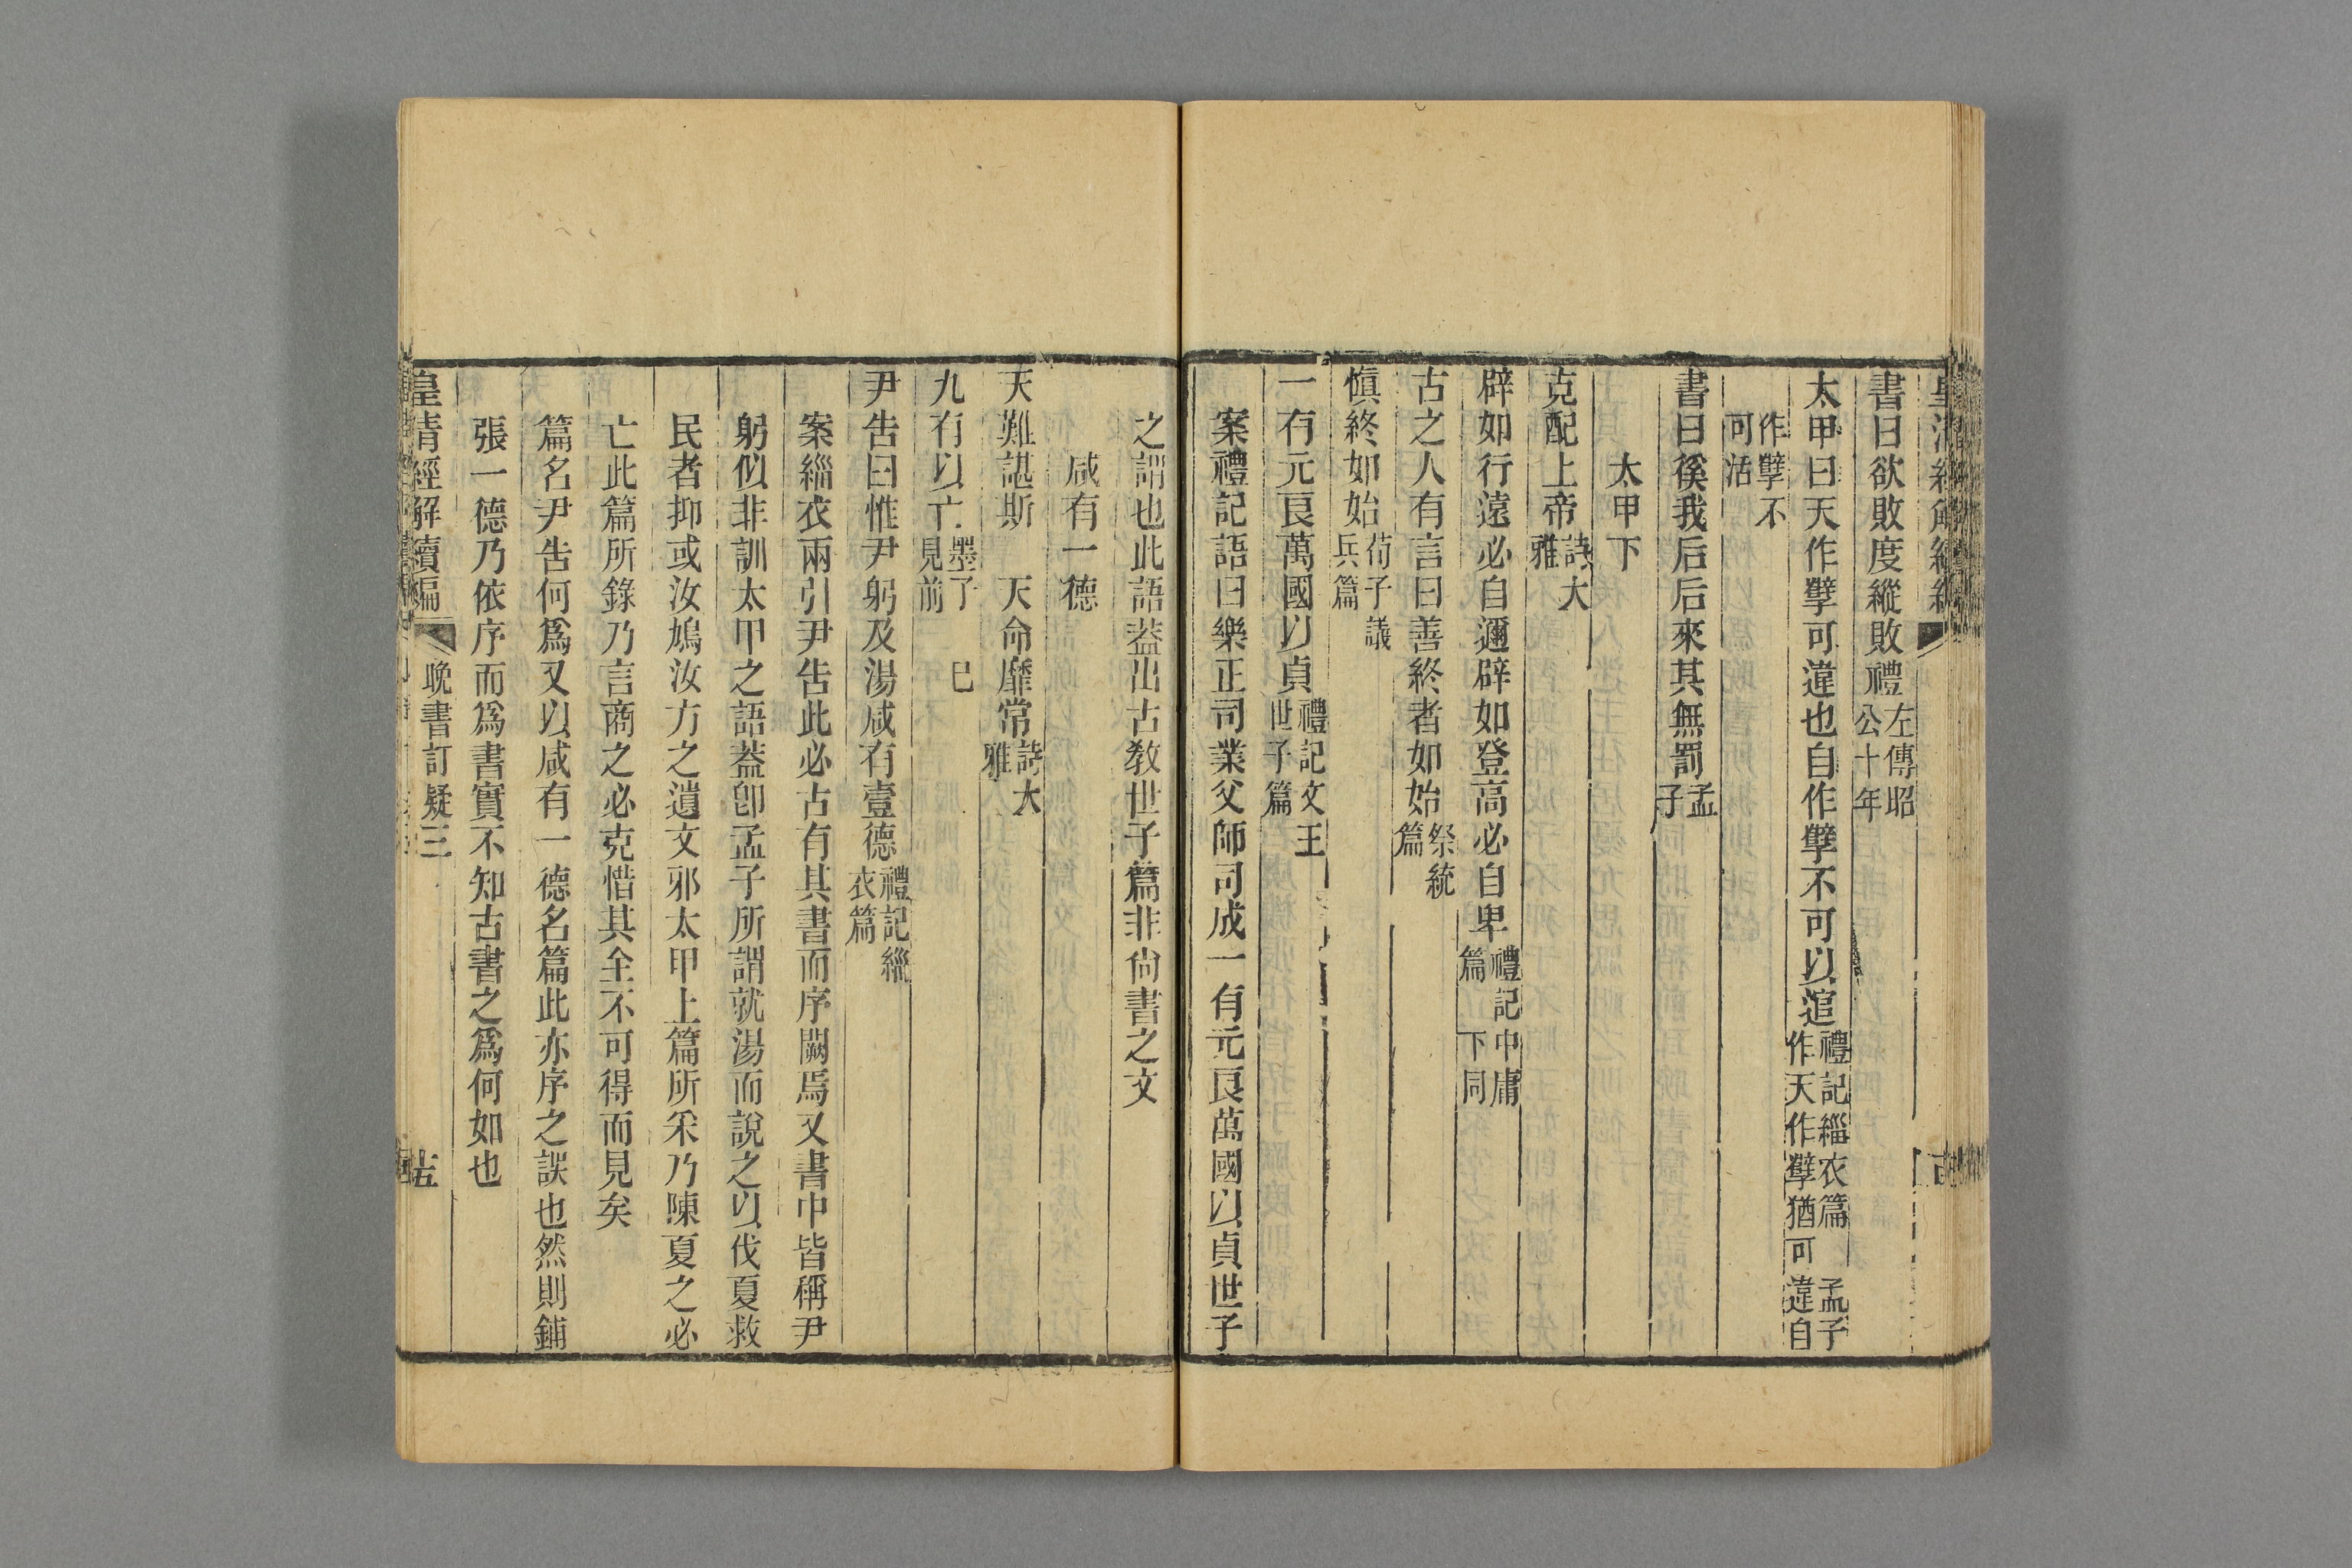 書曰欲敗度縱敗禮左傳昭公十年
太甲曰天作孼可違也自作孼不可以逭禮記緇衣篇 孟子作天作孼猶可違自
作孼不可活
書曰徯我后后來其無罰孟子
太甲下
克配上帝詩大雅
辟如行遠必自邇辟如登高必自卑禮記中庸篇 下同
古之人有言曰善終者如始祭統篇
愼終如始荀子議兵篇
一有元良萬國以貞禮記文王世子篇
案禮記語曰樂正司業父師司成一有元良萬國以貞世子
之謂也此語葢出古敎世子篇非尙書之文
咸有一德
天難諶斯 天命靡常詩大雅
九有以亡墨子 巳見前
尹吿曰惟尹躬及湯咸有壹德禮記緇衣篇
案緇衣兩引尹吿此必古有其書而序闕焉又書中皆稱尹
躬似非訓太甲之語葢卽孟子所謂就湯而說之以伐夏救
民者抑或汝鳩汝方之遺文邪太甲上篇所釆乃陳夏之必
亡此篇所錄乃言商之必克惜其全不可得而見矣
篇名尹吿何爲又以咸有一德名篇此亦序之誤也然則鋪
張一德乃依序而爲書實不知古書之爲何如也
皇淸經解續編 晚書訂疑三 十五